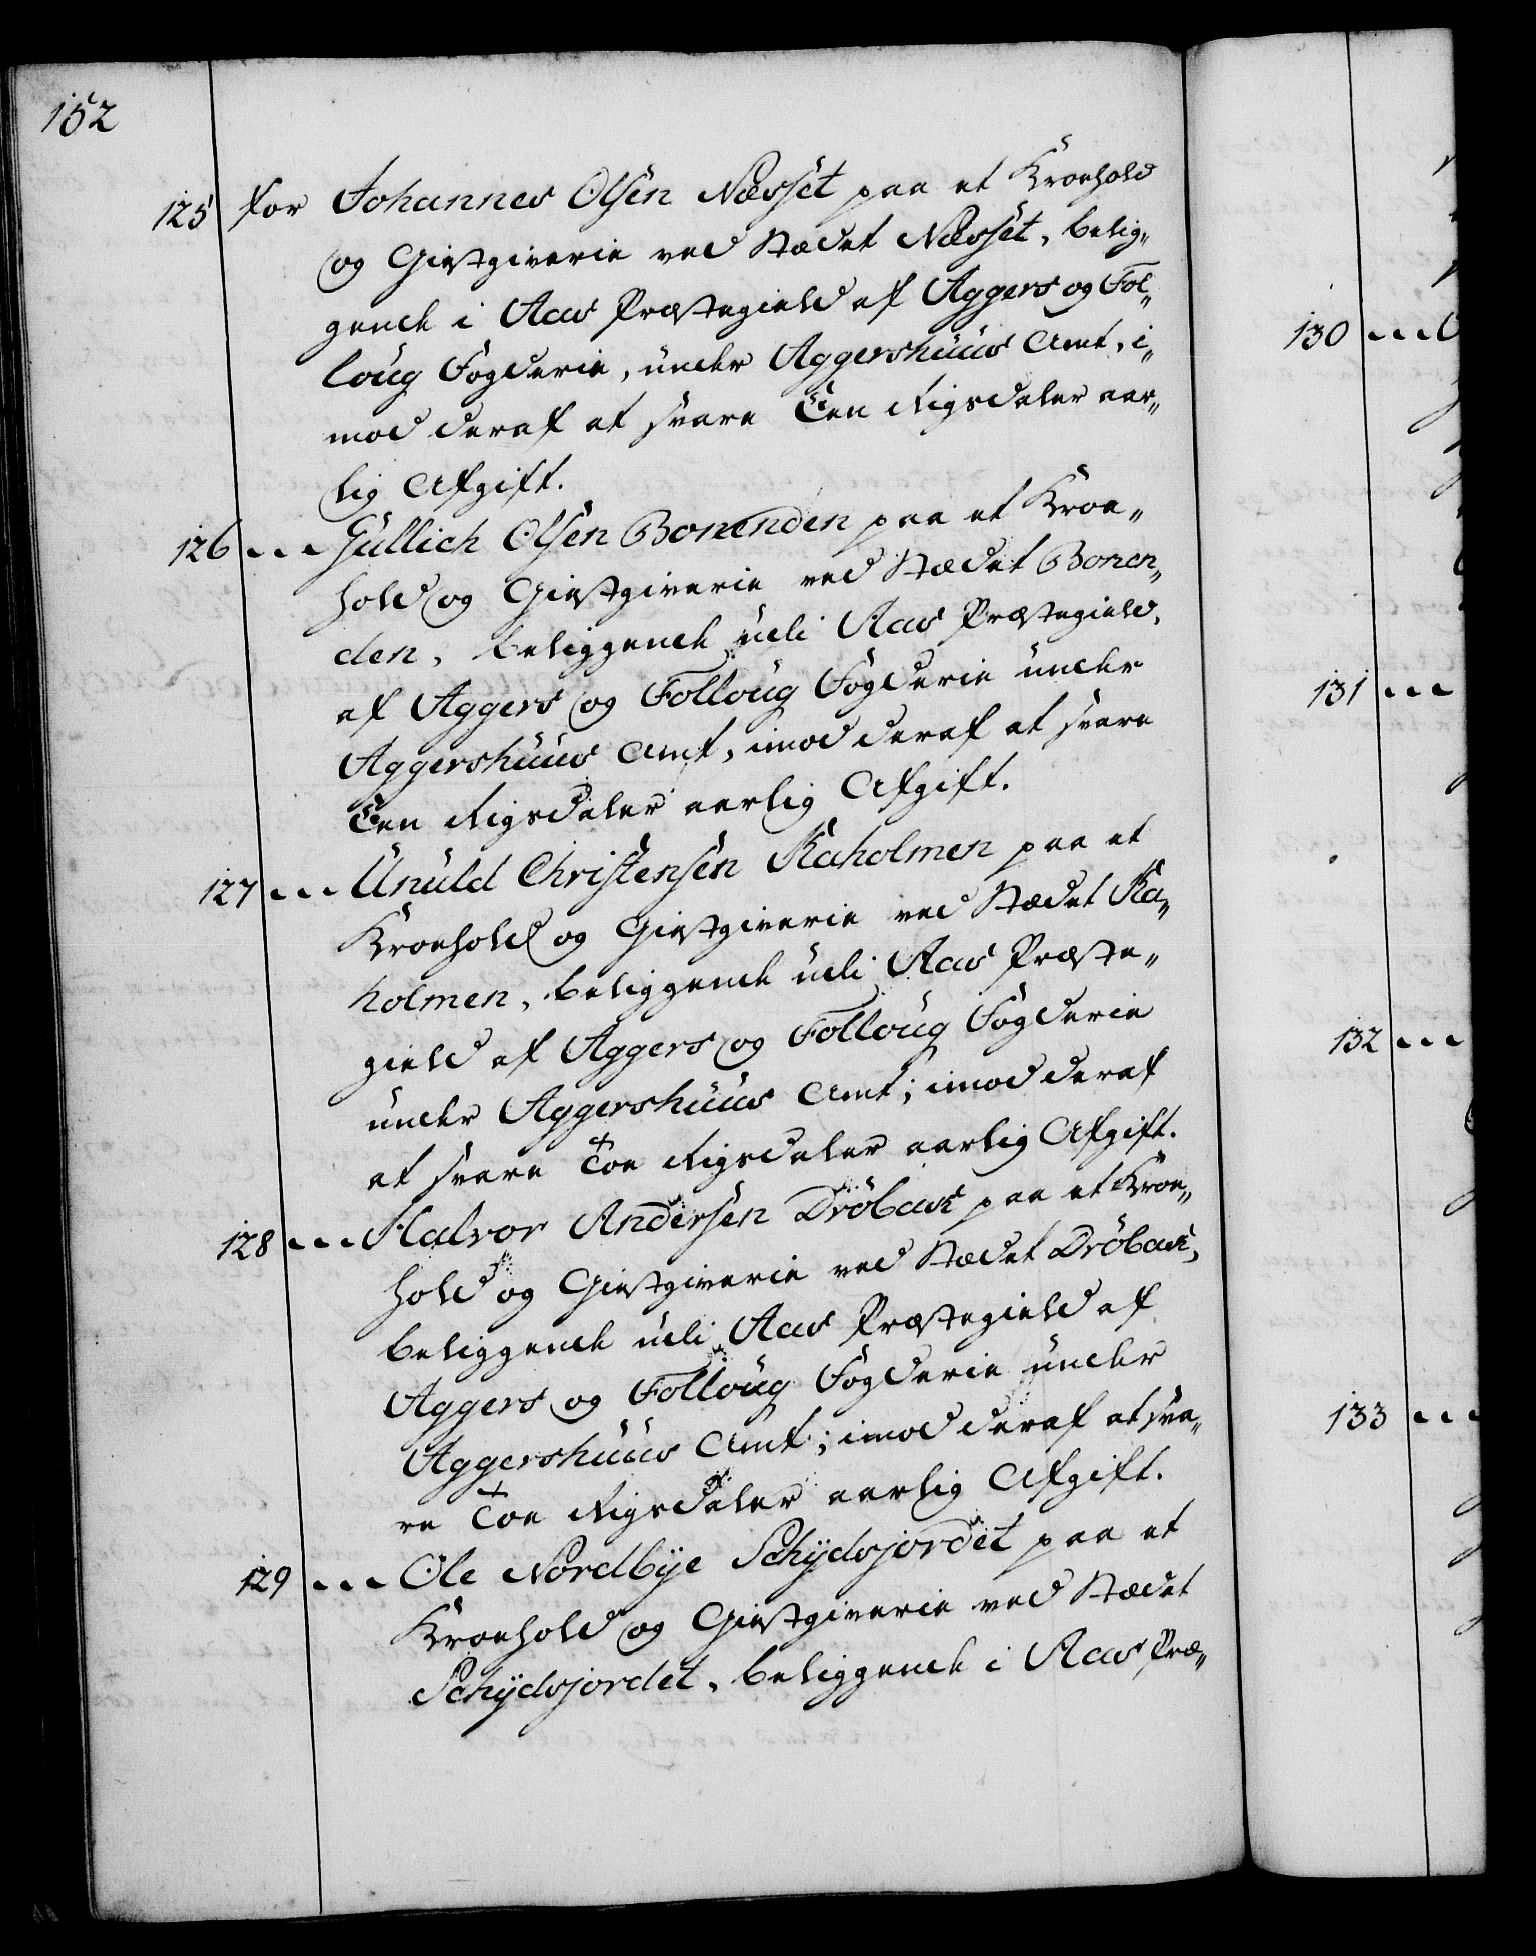 152
125 for Johannes Olsen Næsset paa et Kroehold
og Giestgiverie ved Stædet Næsset, belig„
gende i Aas Præstegield af Aggers og Fol„
loug Fogderie, under Aggershuus Amt, i„
mod deraf at svare Een Rigsdaler aar„
lig Afgift.
126 ... Gullich Olsen Bonenden paa et Kroe„
hold og Giestgiverie ved Stædet Bonen„
den, beliggende udi Aas Præstegield,
af Aggers og Folloug Fogderie under
Aggershuus Amt, imod deraf at svare
Een Rigsdaler aarlig Afgift.
127 ... Unuld Christensen Kaholmen paa et
Kroehold og Giestgiverie ved Stædet Ka„
holmen, beliggende udi Aas Præste„
gield af Aggers og Folloug Fogderie
under Aggershuus Amt; imod deraf
at svare Toe Rigsdaler aarlig Afgift.
128 ... Halvor Andersen Dröbak paa et Kroe„
hold og Giestgiverie ved Stædet Dröbak,
beliggende udi Aas Præstegield af
Aggers og Folloug Fogderie under
Aggershuus Amt; imod deraf at sva„
re Toe Rigsdaler aarlig Afgift.
129 ... Ole Nordbye Schydsjordet paa et
Kroehold og Giestgiverie ved Stædet
Schydsjordet, beliggende i Aas Præ„
130 ...
131 ...
132 ...
133 ...